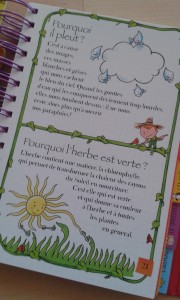 Pourquoi
il pleut ?
C'est à cause
des nuages,
ces masses
blanches et grises
qui nous cachent
le bleu du ciel. Quand les gouttes
d'eau qui les composent deviennent trop lourdes,
elles nous tombent dessus : il ne nous
reste alors plus qu'à ouvrir
nos parapluies !
Pourquoi l'herbe est verte ?
L'herbe contient une matière, la chlorophylle,
qui permet de transformer la chaleur des rayons
du soleil en nourriture.
C'est elle qui est verte
et qui donne sa couleur
à l'herbe et à toutes
les plantes
en général.
21